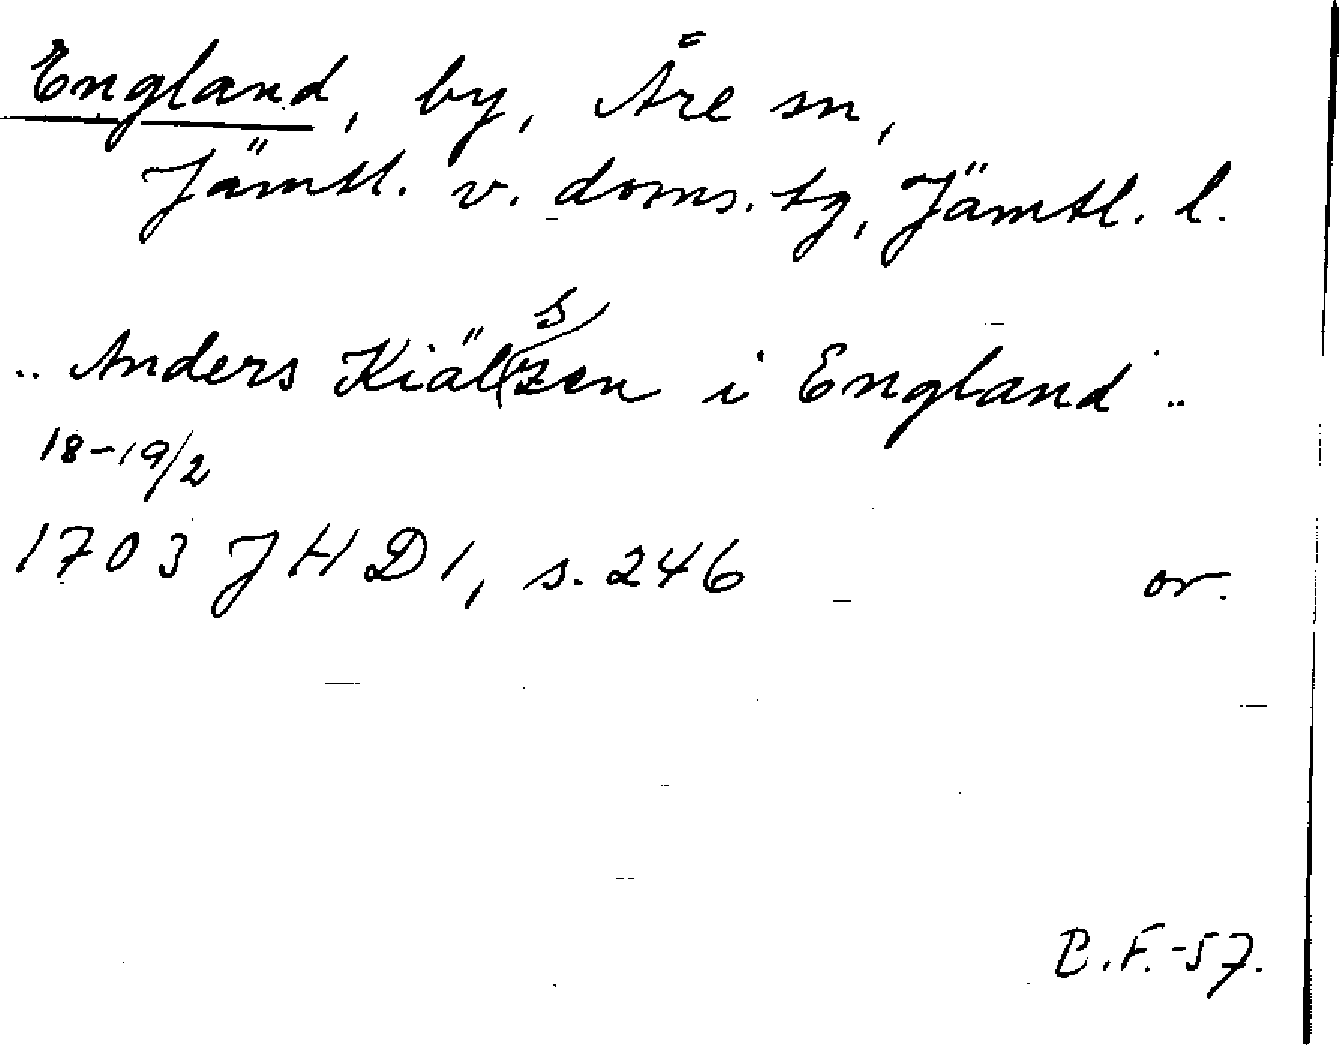 England, by, Åre sn,
Jämtl. v. doms. tg, Jämtl. l.
.. Anders Kiälszen i England ..
18-19/2
1703 JHD1, s. 246 or.
B.F.-57.